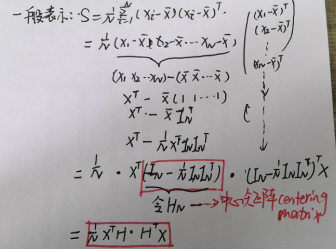 一般表示: S = 1/N Σ_{i=1}^{N} (x_i - x̄)(x_i - x̄)^T.
= 1/N (x_1 - x̄ x_2 - x̄ ⋯ x_N - x̄) ( (x_1 - x̄)^T
(x_2 - x̄)^T
⋮
(x_N - x̄)^T )
(x_1 x_2 ⋯ x_N) - (x̄ x̄ ⋯ x̄)
X^T - x̄ (1 1 ⋯ 1)
X^T - x̄ 1_N^T
X^T - 1/N X^T 1_N 1_N^T
= 1/N · X^T (I_N - 1/N 1_N 1_N^T) · (I_N - 1/N 1_N 1_N^T)^T X
令 H_N → 中心矩阵 centering
matrix
= 1/N X^T H · H^T X